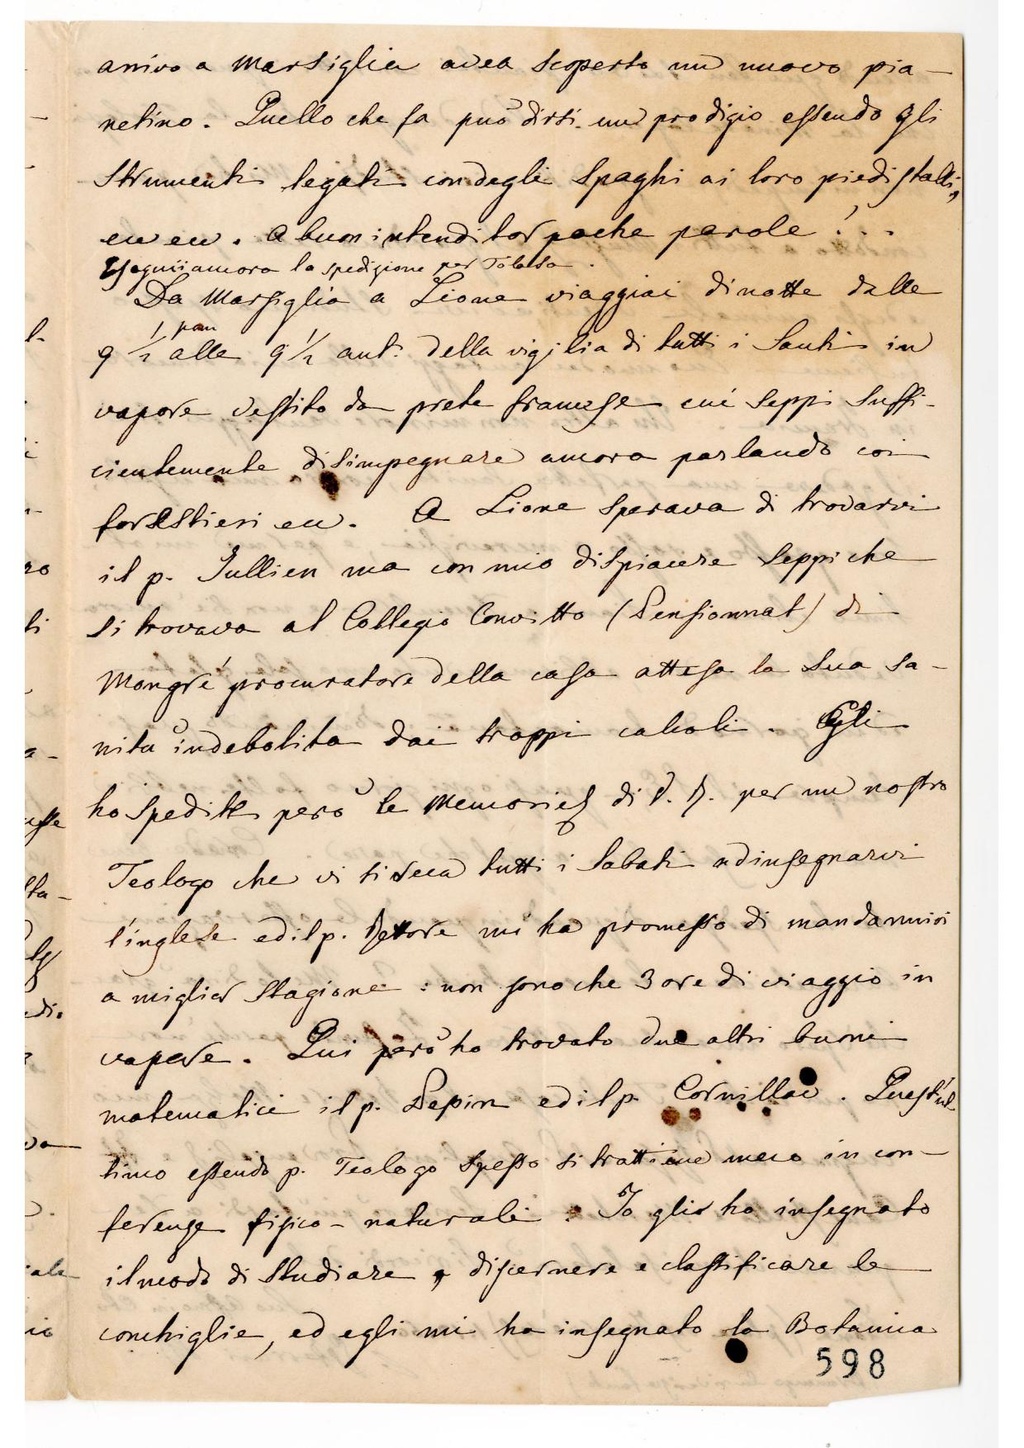 arrivo a Marsiglia avea scoperto un nuovo pia-
netino. Quello che fa può dirsi un prodigio essendo gli
strumenti legati con degli spaghi ai loro piedistalli,
ecc ecc. A buon intenditor poche parole!..
Eseguii ancora la spedizione per Tolosa.
Da Marsiglia a Lione viaggiai di notte dalle
9 1/2 pom alle 9 1/2 ant. della vigilia di tutti i Santi in
vapore vestito da prete francese cui seppi suffi-
cientemente disimpegnare ancora parlando coi
forestieri ecc. A Lione sperava di trovarvi
il p. Jullien ma con mio dispiacere seppi che
si trovava al Collegio Convitto (Pensionnat) di
Mongré procuratore della casa attesa la sua sa-
nità indebolita dai troppi calcoli. Gli
ho spedite però le Memorie di V. R. per un nostro
Teologo che vi si reca tutti i Sabati ad insegnarvi
l'inglese ed il p. Rettore mi ha promesso di mandarmivi
a miglior stagione: non sono che 3 ore di viaggio in
vapore. Qui però ho trovato due altri buoni
matematici il p. Pepin ed il p. Cornillac. Quest'ul-
timo essendo p. Teologo spesso si trattiene meco in con-
ferenze fisico-naturali. Io gli ho insegnato
il modo di studiare, discernere e classificare le
conchiglie, ed egli mi ha insegnato la Botanica
598